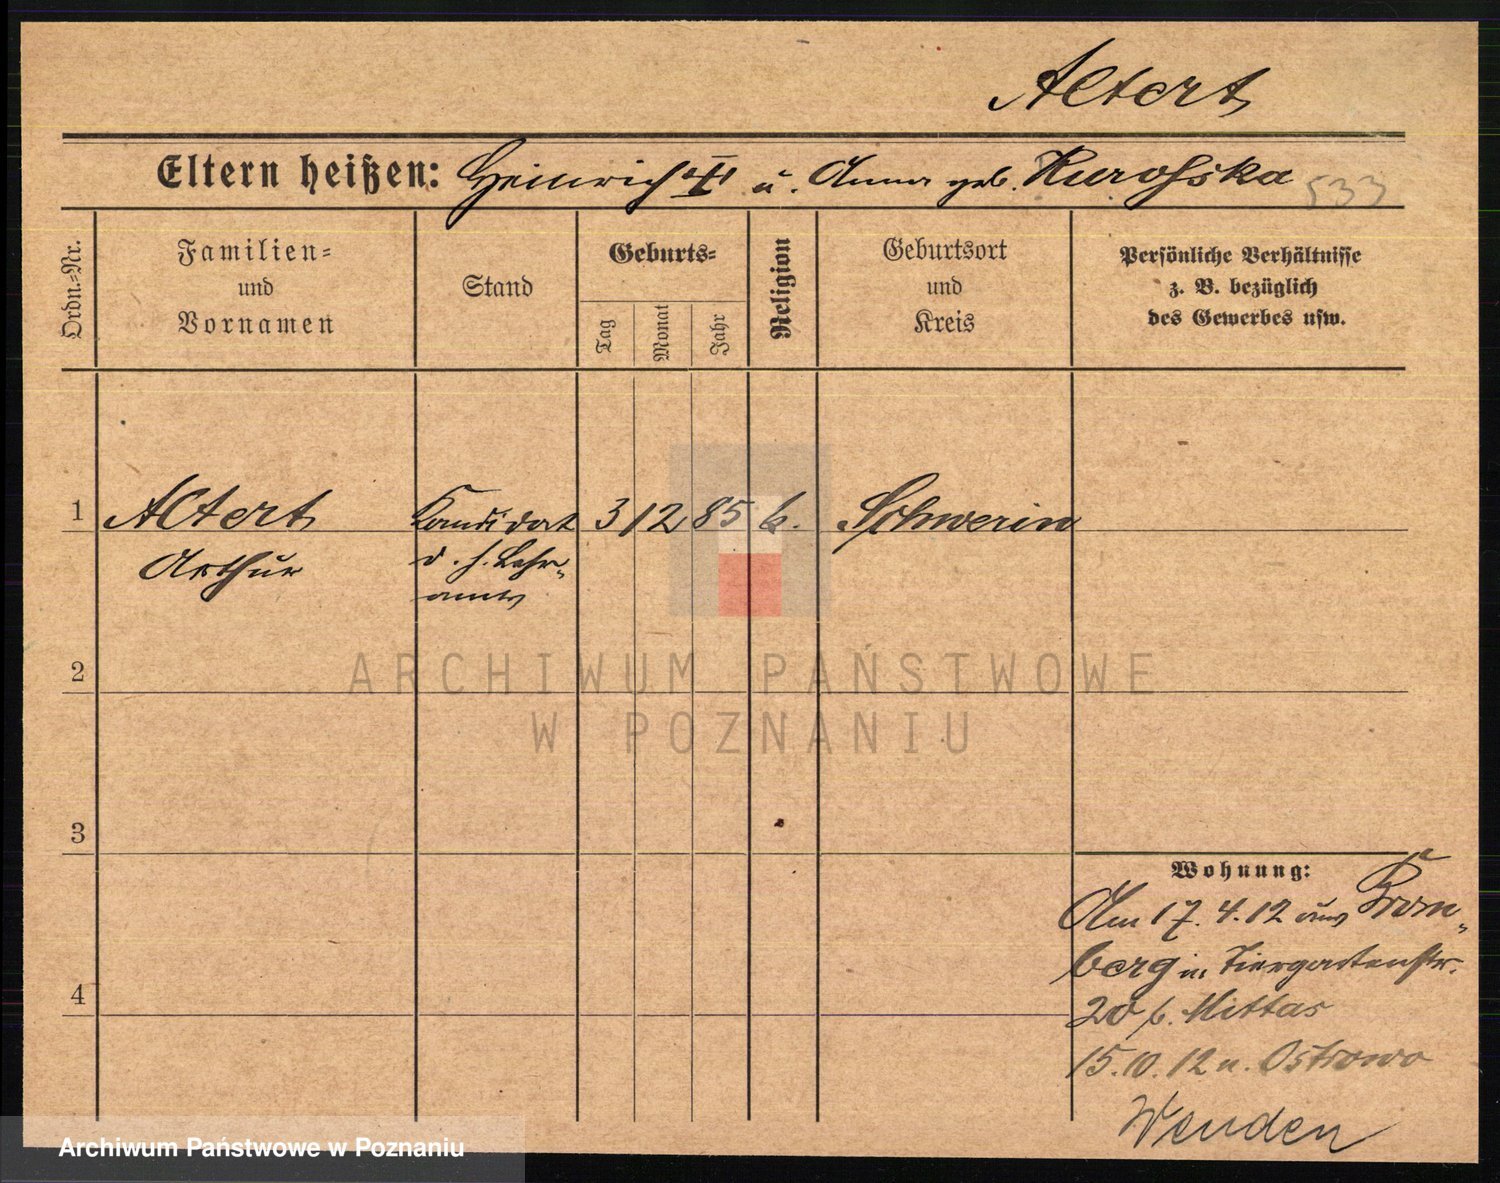 Altert
Eltern heißen: Heinrich u. Anna geb.
533
Ordn.-Nr.
Familien-
und
Vornamen
Stand
Geburts-
Tag
Monat
Jahr
Religion
Geburtsort
und
Kreis
Persönliche Verhältnisse
z. B. bezüglich
des Gewerbes usw.
1 Altert Kandidat 3 12 85 k. Schwerin
Arthur d. h. Lehr-
amts
2
3
4
Wohnung:
Am 17.4.12 aus Brom-
berg in Tiergartenstr.
20 b. Mittas
15.10.12 n. Ostrowo
Wenden
ARCHIWUM PAŃSTWOWE
W POZNANIU
Archiwum Państwowe w Poznaniu